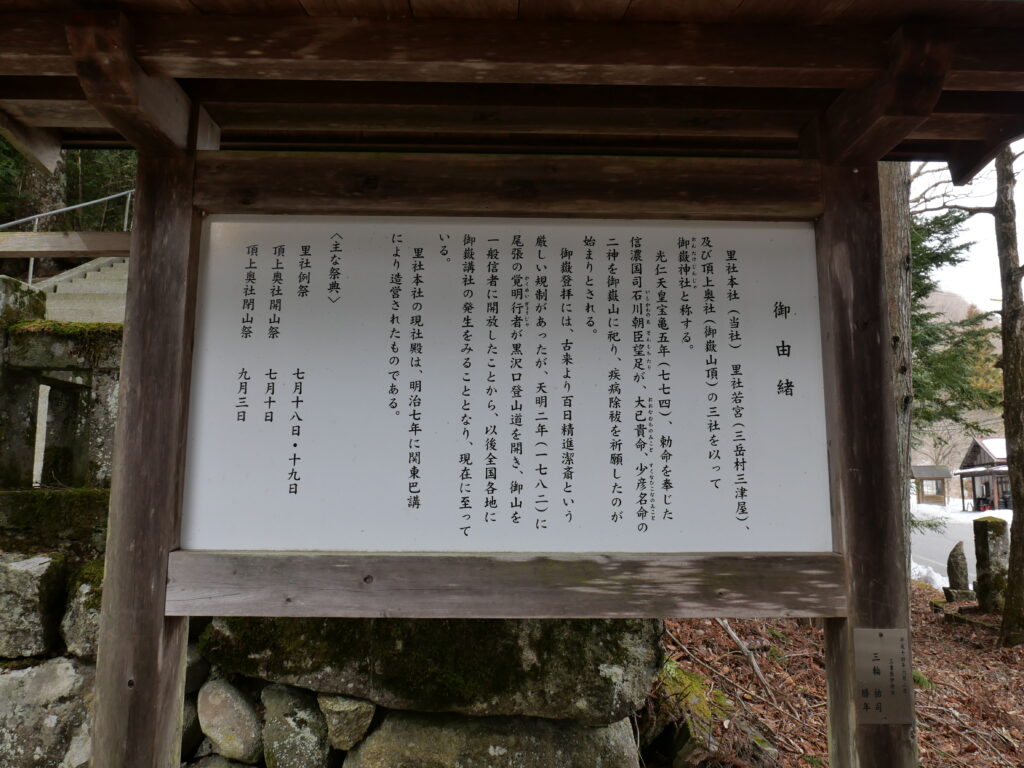 御由緒
里社本社（当社）　里社若宮（三岳村三津屋）、
及び頂上奥社（御嶽山頂）の三社を以って
御嶽神社と称する。
光仁天皇宝亀五年（七七四）、勅命を奉じた
信濃国司石川朝臣望足が、大己貴命、少彦名命の
二神を御嶽山に祀り、疾病除祓を祈願したのが
始まりとされる。
御嶽登拝には、古来より百日精進潔斎という
厳しい規制があったが、天明二年（一七八二）に
尾張の覚明行者が黒沢口登山道を開き、御山を
一般信者に開放したことから、以後全国各地に
御嶽講社の発生をみることとなり、現在に至って
いる。
里社本社の現社殿は、明治七年に関東巴講
により造営されたものである。
〈主な祭典〉
里社例祭　七月十八日・十九日
頂上奥社開山祭　七月十日
頂上奥社閉山祭　九月三日
三輪